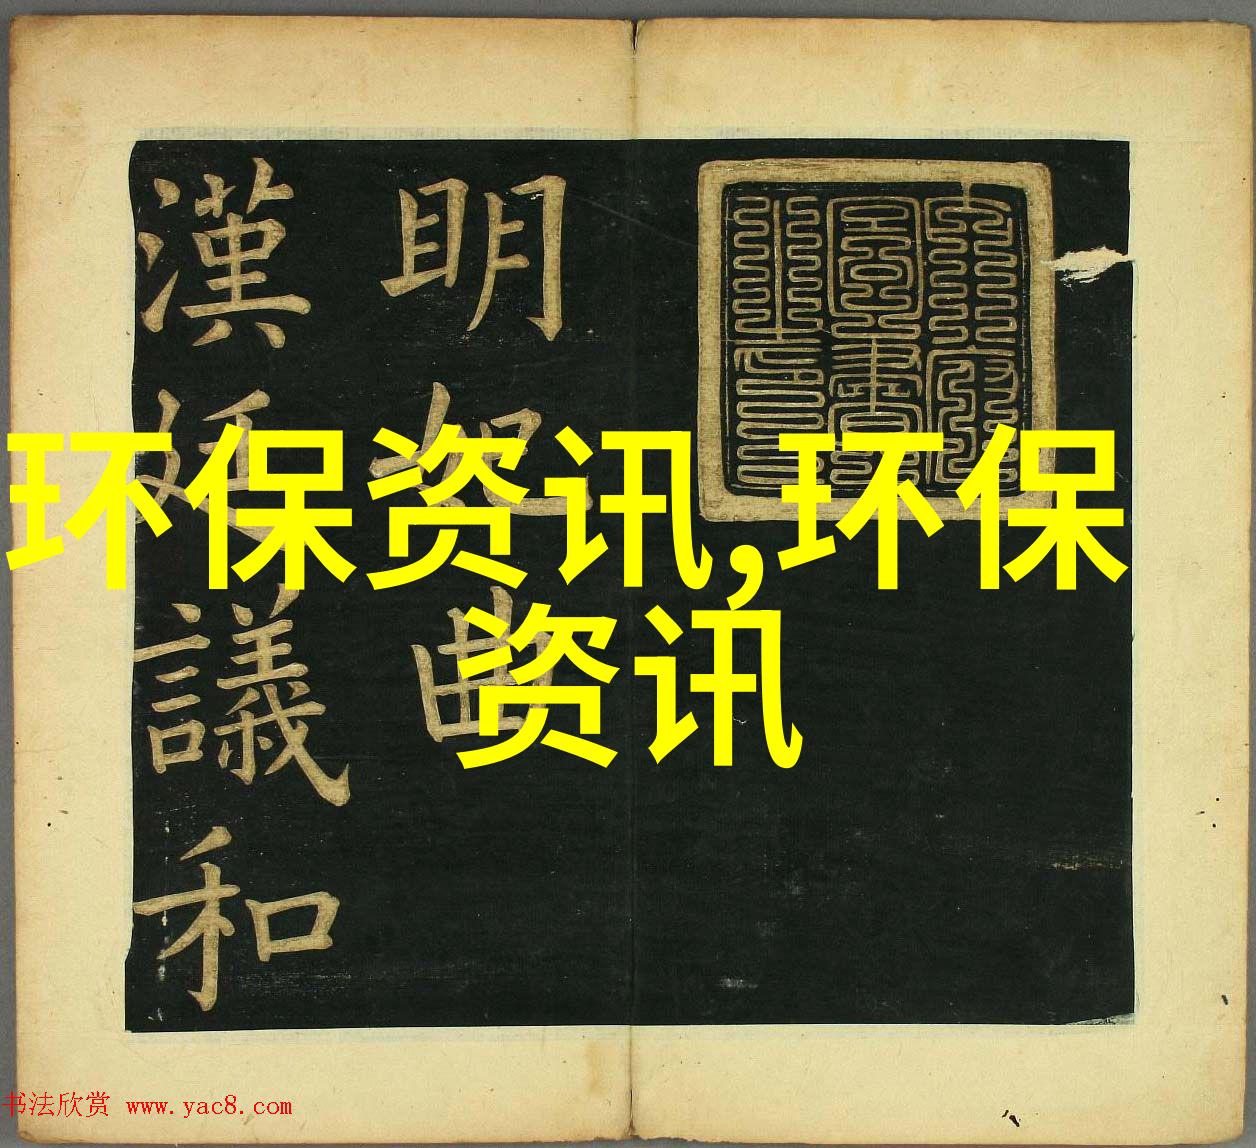 明妃曲
漢議和
环保资讯,环保
资讯
书法欣赏 www.yac8.com